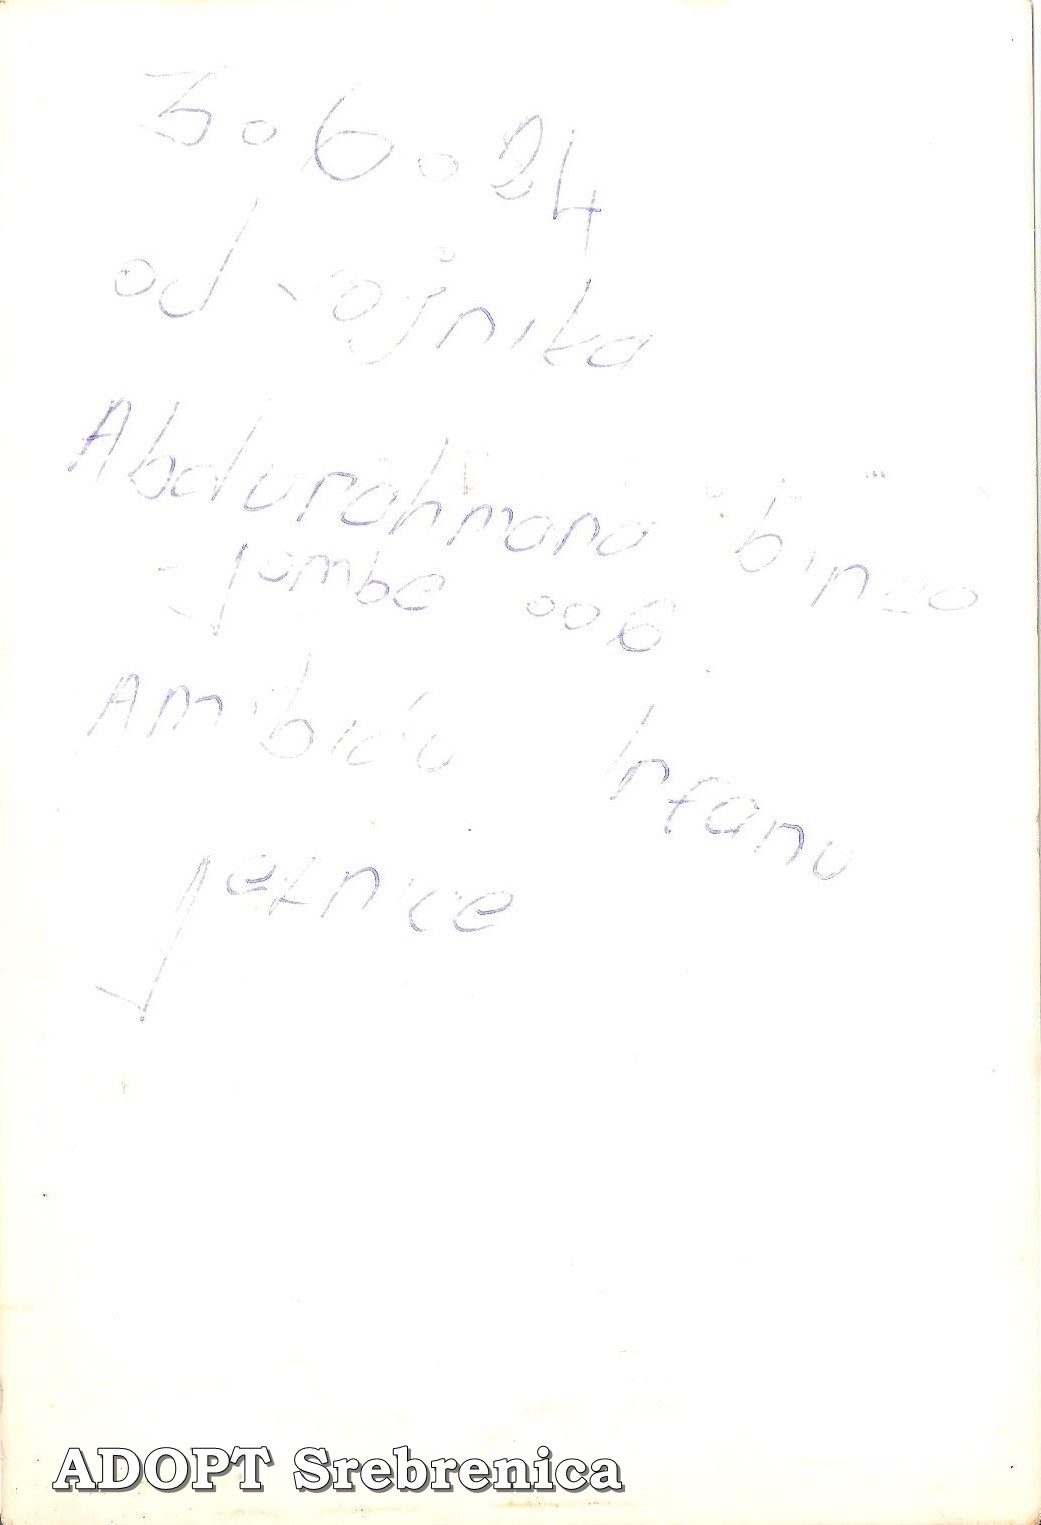 3.6.84
od vojnika
Abdurahmana bingo
Jombe 006
Ambiću Irfanu
Jetnice
ADOPT Srebrenica